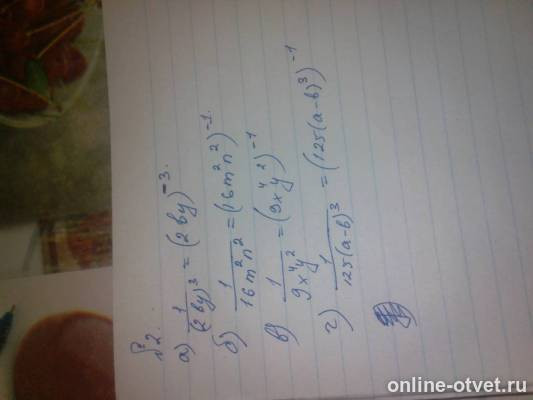 №2.
а) 1/(2by)³ = (2by)⁻³.
б) 1/16m²n² = (16m²n²)⁻¹.
в) 1/9x⁴y² = (9x⁴y²)⁻¹
г) 1/125(a-b)³ = (125(a-b)³)⁻¹
online-otvet.ru